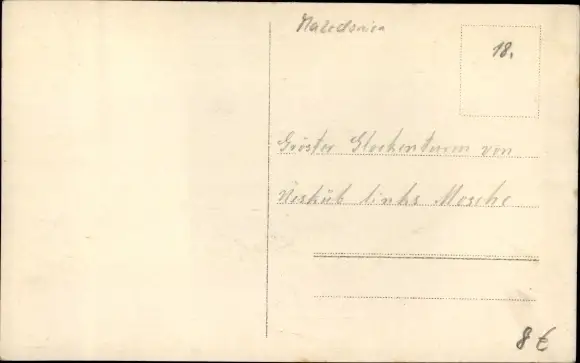 Mazedonien
18.
Gröster Glockenturm von
Üeskùb links Mosche
8 €